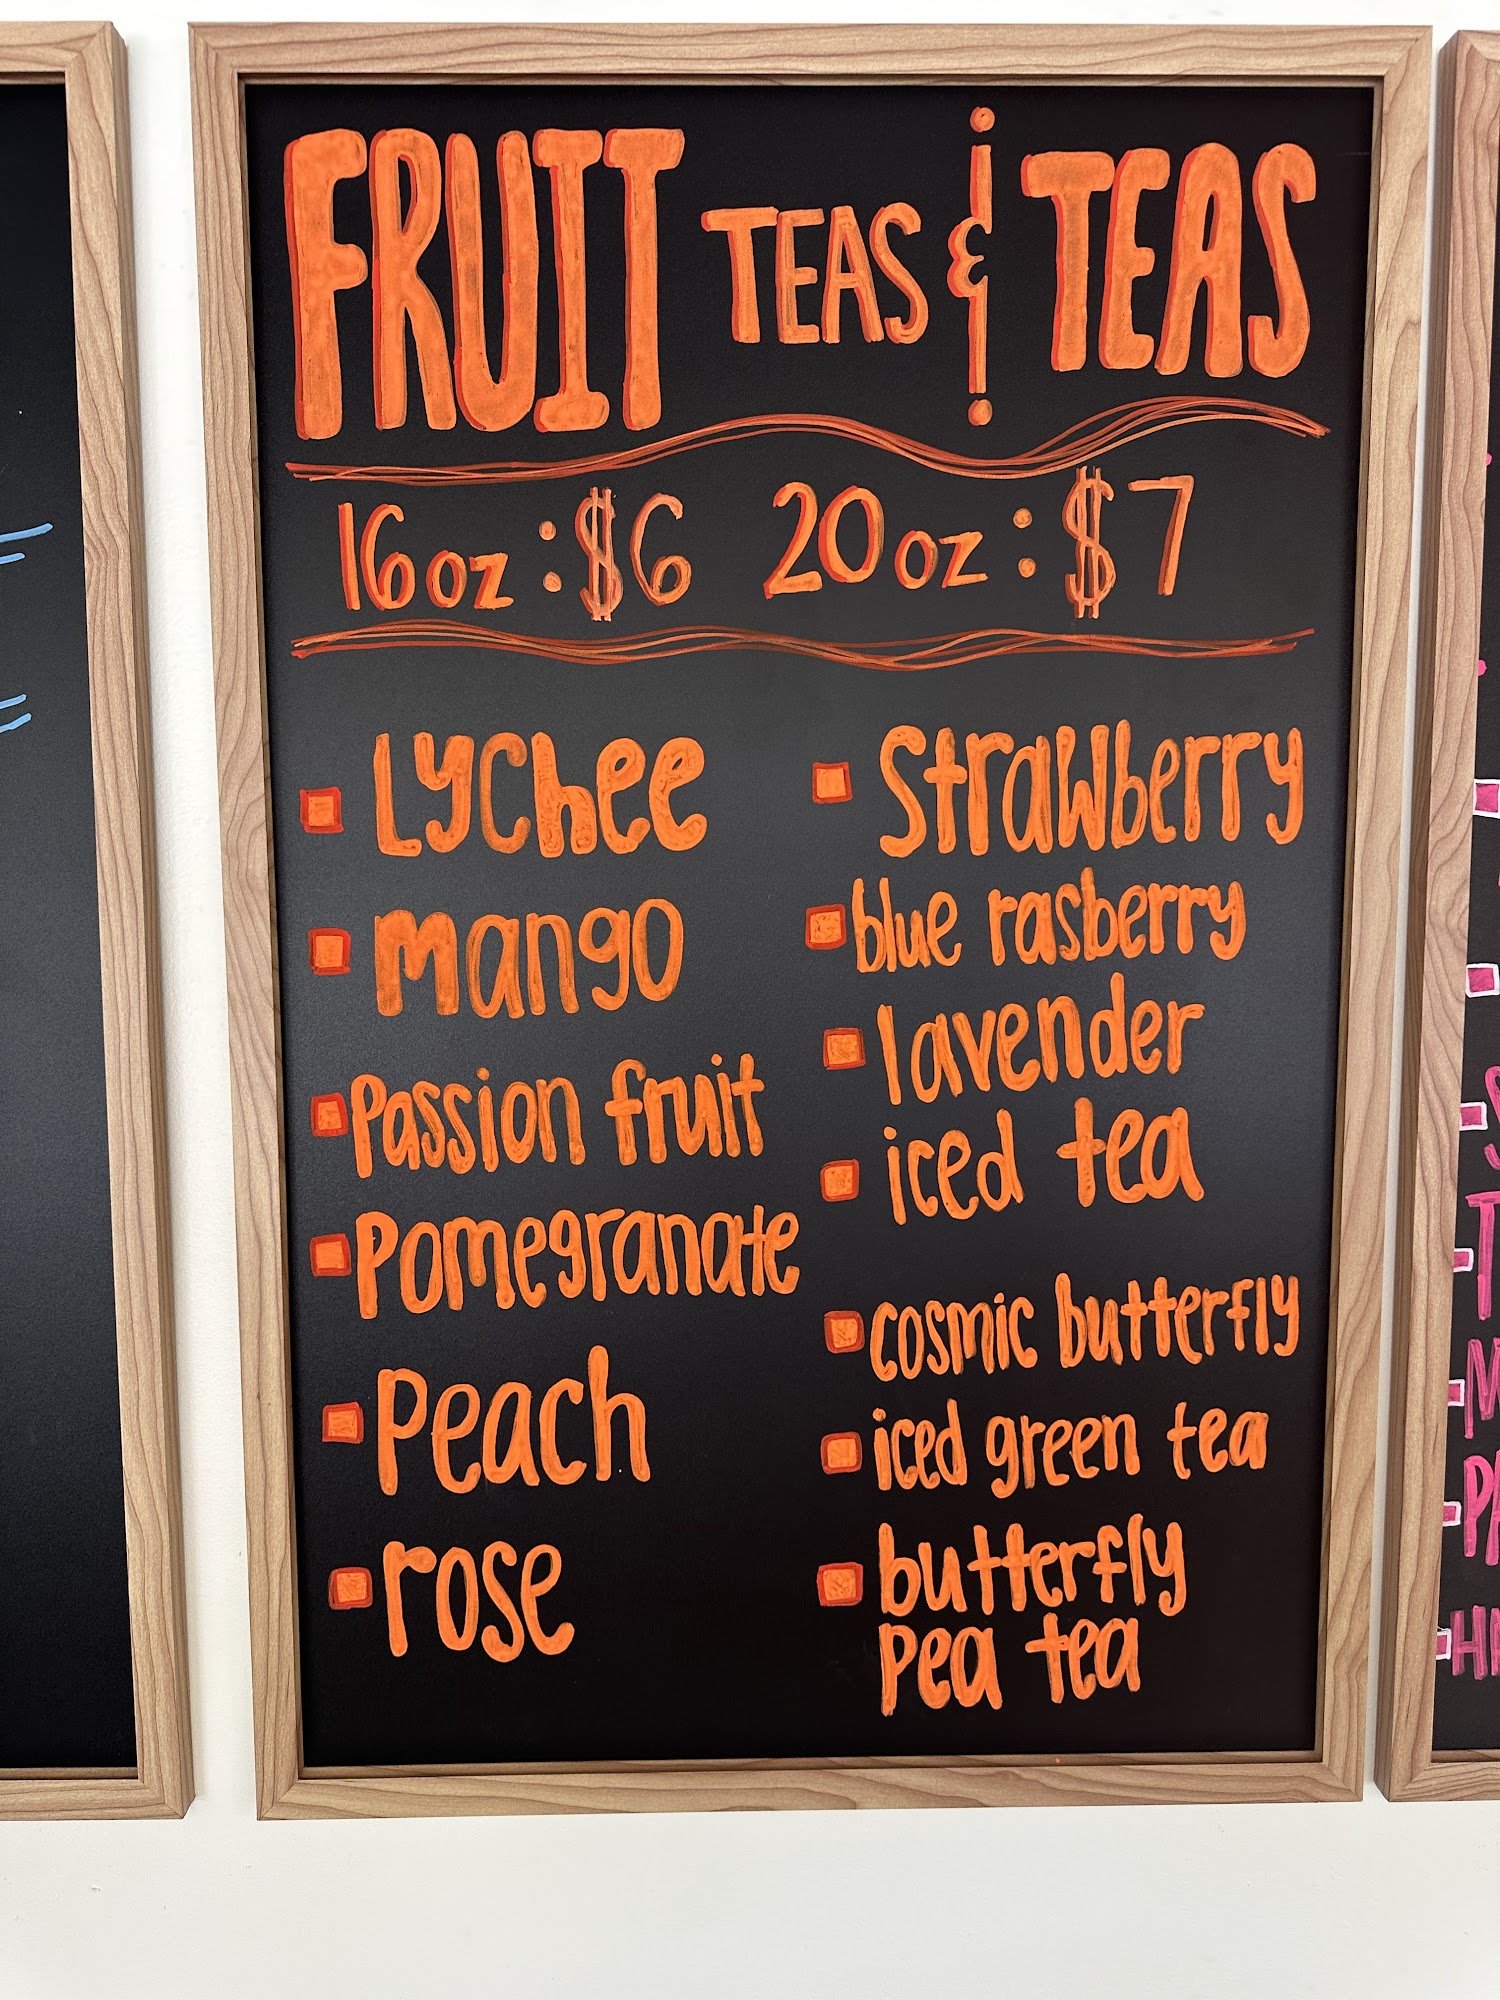 FRUIT TEAS & TEAS
16oz : $6 20oz : $7
Lychee
mango
Passion fruit
Pomegranate
Peach
rose
Strawberry
blue rasberry
lavender
iced tea
cosmic butterfly
iced green tea
butterfly
pea tea